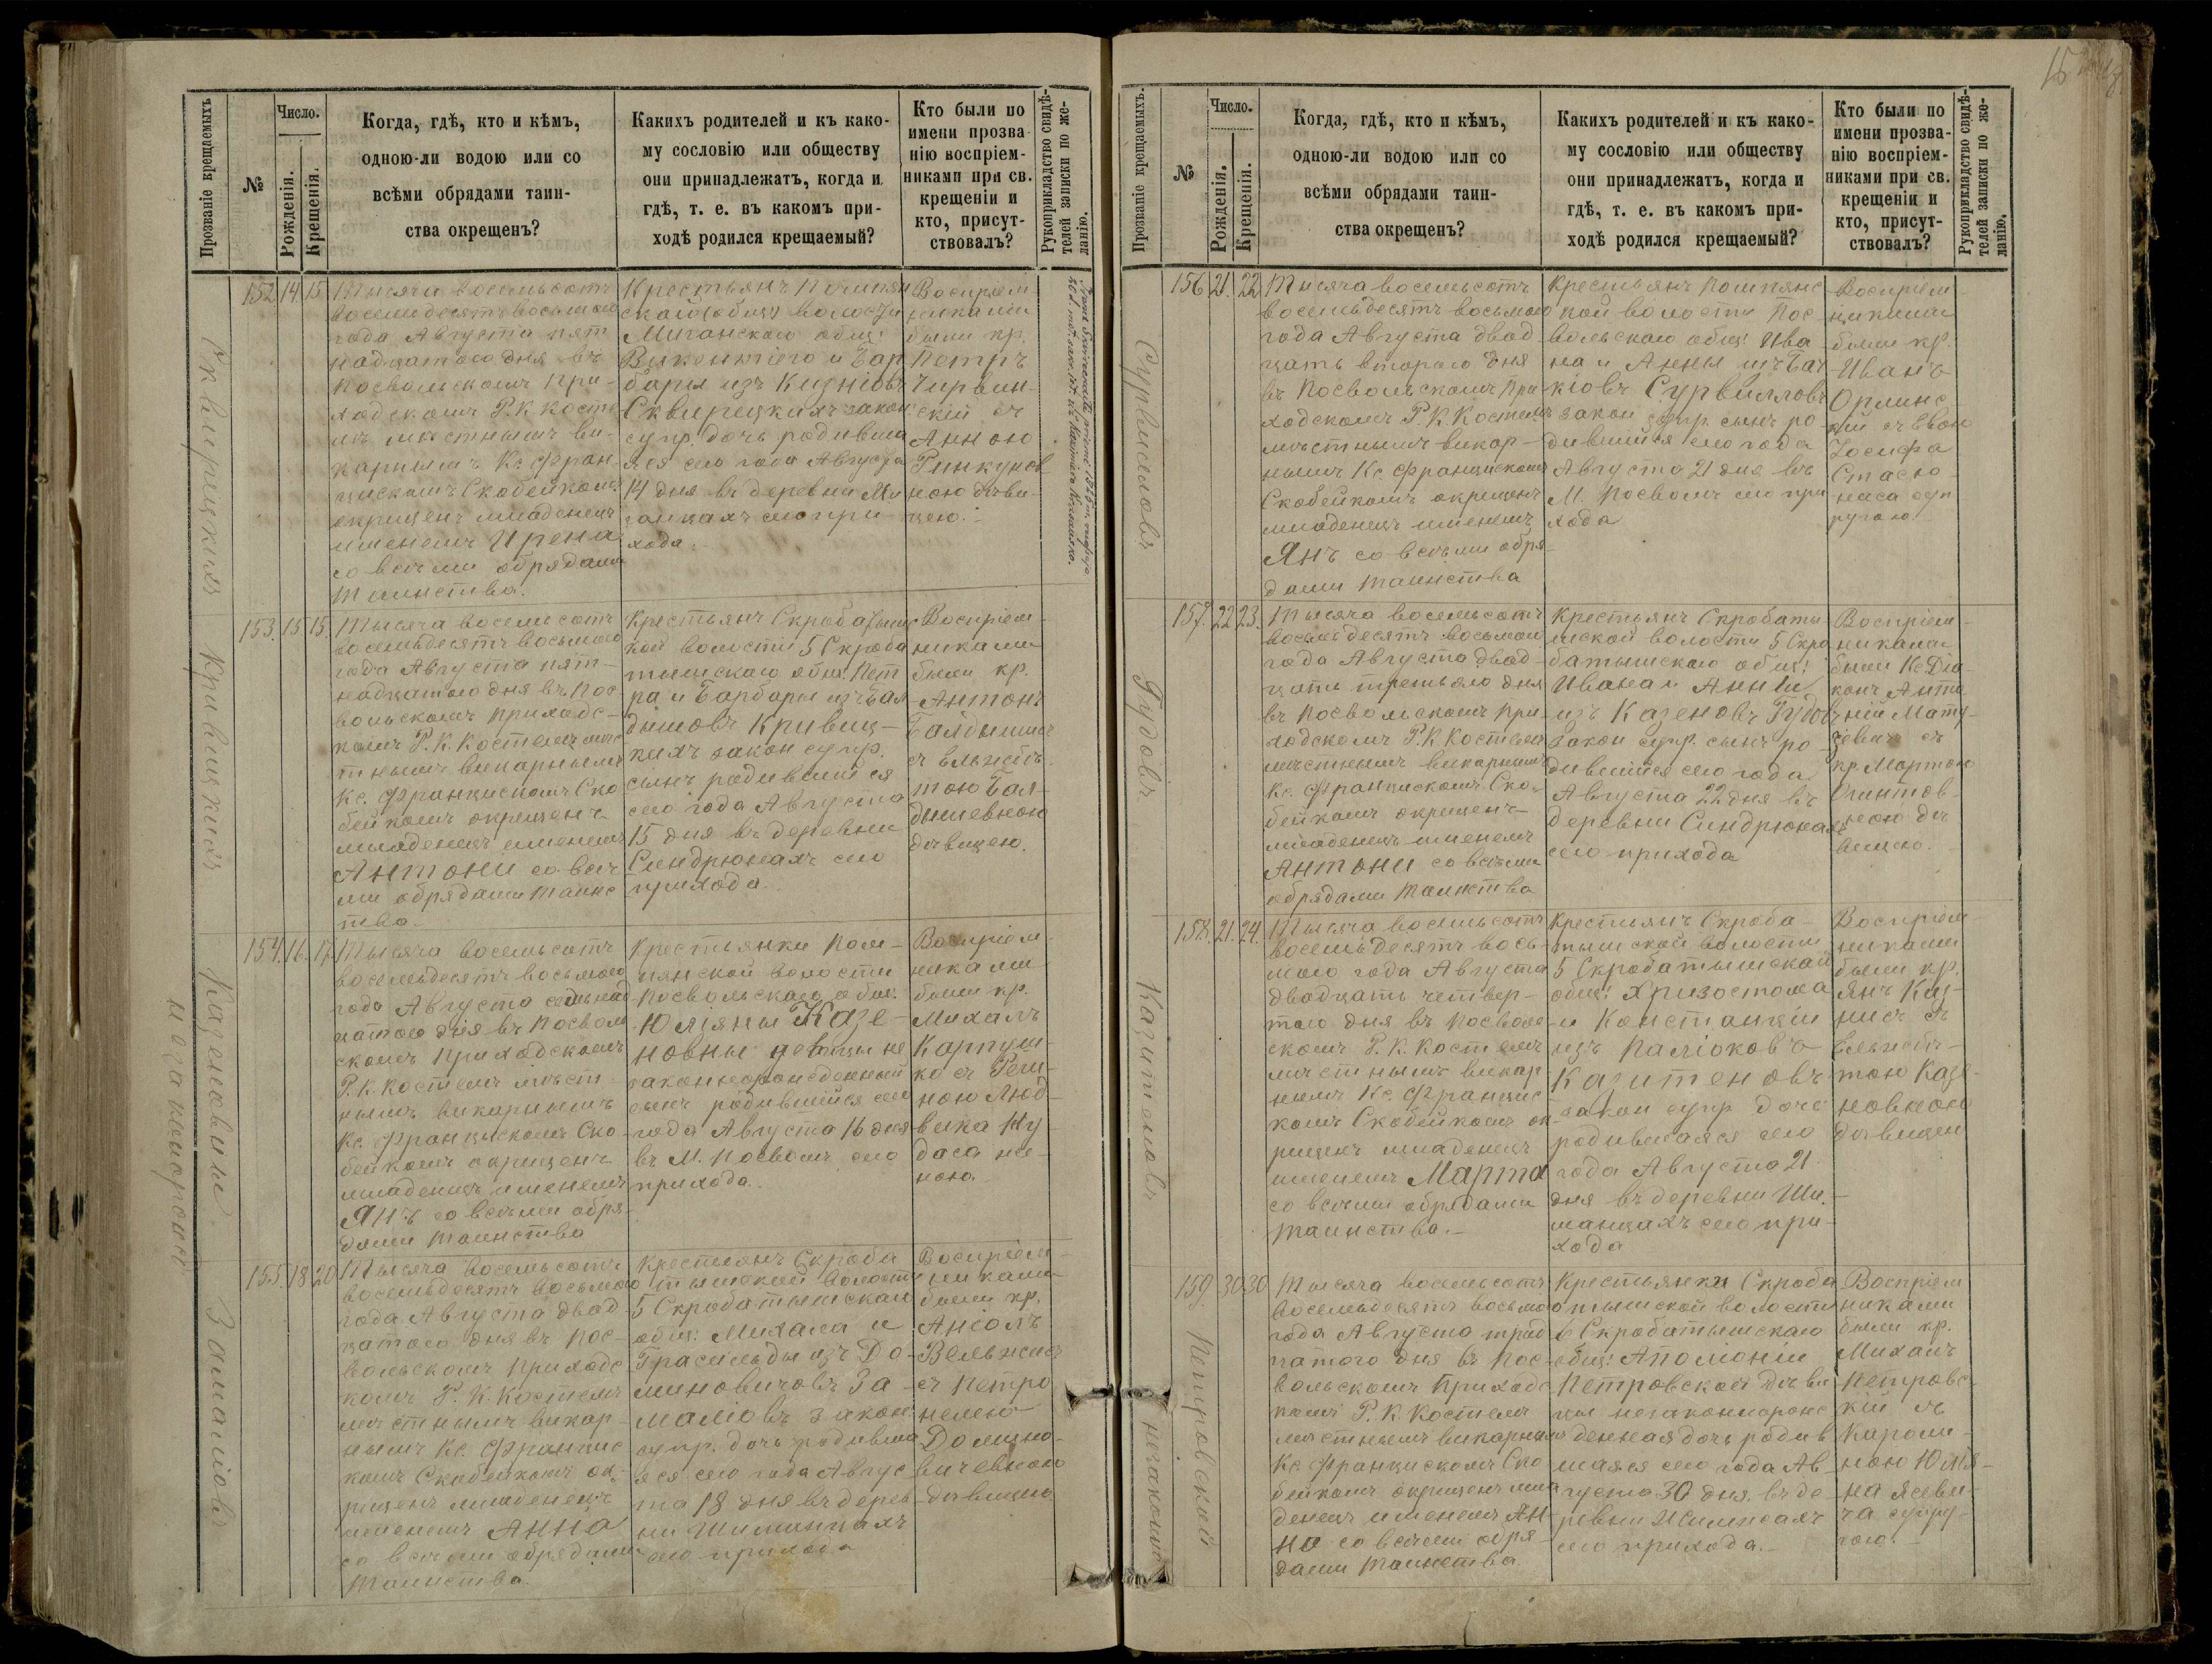 Прозваніе крещаемыхъ
№
Число.
Рожденія.
Крещенія.
Когда, гдѣ, кто и кѣмъ,
одною-ли водою или со
всѣми обрядами таин-
ства окрещенъ?
Какихъ родителей и къ како-
му сословію или обществу
они принадлежатъ, когда и
гдѣ, т. е. въ какомъ при-
ходѣ родился крещаемый?
Кто были по
имени прозва
нію воспріем-
никами при св.
крещеніи и
кто, присут-
ствовалъ?
Рукоприкладство свидѣ-
телей записки по же-
ланію.
Сквирецкихъ
152 14 15
Тысяча восемьсотъ
восемьдесятъ восьмого
года Августа пят
надцатого дня въ
Посвольскомъ При-
ходскомъ Р.К. Косте
лѣ мѣстнымъ ви-
карнымъ Кс. Фран-
цискомъ Скобейкомъ
окрещенъ младенецъ
именемъ Ирена
со всѣми обрядами
таинства.
Крестьянъ Помпян
ской волости
общ:
Викентіего и Бар
бары изъ
Сквирецкихъ закон
супр. дочь родивша
яся сего года Августа
14 дня въ деревни Ми
сего при-
хода.
Воспріем
никами
были кр.
Петръ
Чирвин-
скій съ
Анною
Ринкунов
ною дѣви-
цею.
Кривицкихъ
153. 15 15.
Тысяча восемьсотъ
восемьдесятъ восьмого
года Августа пят-
надцатого дня въ Пос-
вольскомъ приходс-
комъ Р.К. Костелѣ мѣс
тнымъ викарнымъ
Кс. Францискомъ Ско
бейкомъ окрещенъ
младенецъ именемъ
Антони со всѣ
ми обрядами таинс
тва.
Крестьянъ Скробатыш
кой волости 5 Скроба
тышскаго общ. Пет
ра и Барбары изъ Бал
дишовъ Кривиц-
кихъ закон супр.
сынъ родившійся
сего года Августа
15 дня въ деревни
Синдрюнахъ сего
прихода.
Воспріем-
никами
были кр.
Антонъ
съ Эльжбѣ-
тою Бал-
дышевною
дѣвицею.
Казеновы. незаконорожд
154. 16. 17.
Тысяча восемьсотъ
восемьдесятъ восьмого
года Августа семьнад
цатого дня въ Посволь
скомъ приходскомъ
Р.К. Костелѣ мѣст
нымъ викарнымъ
Кс. Францискомъ Ско-
бейкомъ окрещенъ
младенецъ именемъ
Янъ со всѣми обря-
дами таинства
Крестьянки Пом-
пянской волости
Посвольскаго общ.
Юліяны Казе-
новны дѣвицы не
законнорожденный
сынъ родившійся сего
года Августа 16 дня
въ М. Посволѣ сего
прихода.
Воспріем-
никами
были кр.
Михалъ
Карпуш-
ко съ
ною Люд-
вика Ну-
даса же-
ною.
Замаліовъ
155. 18 20
Тысяча восемьсотъ
восемьдесятъ восьмого
года Августа двад
цатого дня въ Пос-
вольскомъ приходс
комъ Р.К. Костелѣ
мѣстнымъ викар-
нымъ Кс. Францис
комъ Скобейкомъ ок-
рещенъ младенецъ
именемъ Анна
со всѣми обрядами
таинства.
Крестьянъ Скроба
тышской волости
5 Скробатышскаи
общ: Михала и
Грасильды изъ До-
миновичовъ За
маліовъ закон
супр. дочь родивша
яся сего года Авгус
та 18 дня въ дерев
ни Шиманцахъ
сего прихода
Воспріем-
никами
были кр.
съ Петро
нелею
Домино-
вичевною
дѣвицею.
Прозваніе крещаемыхъ.
№
Число.
Рожденія.
Крещенія.
Когда, гдѣ, кто и кѣмъ,
одною-ли водою или со
всѣми обрядами таин-
ства окрещенъ?
Какихъ родителей и къ како-
му сословію или обществу
они принадлежатъ, когда и
гдѣ, т. е. въ какомъ при-
ходѣ родился крещаемый?
Кто были по
имени прозва-
нію воспріем-
никами при св.
крещеніи и
кто, присут-
ствовалъ?
Рукоприкладство свидѣ-
телей записки по же-
ланію.
Сурвилловъ
156 21. 22
Тысяча восемьсотъ
восемьдесятъ восьмого
года Августа двад
цать второго дня
въ Посвольскомъ при
ходскомъ Р.К. Костелѣ
мѣстнымъ викар-
нымъ Кс. Францискомъ
Скобейкомъ окрещенъ
младенецъ именемъ
Янъ со всѣми обря-
дами таинства
Крестьянъ Помпянс
кой волости Пос-
вольскаго общ: Ива
на и Анны изъ
Сурвилловъ
закон супр. сынъ ро-
дившійся сего года
Августа 21 дня въ
М. Посволѣ сего при
хода
Воспріем-
никами
были кр.
Иванъ
съ Евою
Іосифа
суп
ругою.
Гудовъ
157. 22 23.
Тысяча восемьсотъ
восемьдесятъ восьмого
года Августа двад-
цать третьяго дня
въ Посвольскомъ при
ходскомъ Р.К. Костелѣ
мѣстнымъ викарнымъ
Кс. Францискомъ Ско-
бейкомъ окрещенъ
младенецъ именемъ
Антони со всѣми
обрядами таинства
Крестьянъ Скробаты
шской волости 5 Скро
батышскаго общ:
Ивана и Анны
изъ Казеновъ Гудовъ
закон супр. сынъ ро
дившійся сего года
Августа 22 дня въ
деревни Синдрюнахъ
сего прихода
Воспріем-
никами
были Кс. Діа-
конъ Анто
ній Мату-
левичъ съ
кр. Мартою
ною дѣ
вицею.
Казитеновъ
158. 21. 24.
Тысяча восемьсотъ
восемьдесятъ вось-
мого года Августа
двадцать четвер-
того дня въ Посволь-
скомъ Р.К. Костелѣ
мѣстнымъ викар
нымъ Кс. Францис
комъ Скобейкомъ ок-
рещенъ младенецъ
именемъ Марта
со всѣми обрядами
таинства.
Крестьянъ Скроба-
тышской волости
5 Скробатышскаи
общ: Хризостома
и Констанціи
изъ Паліоковъ
Казитеновъ
закон супр. дочь
родившаяся сего
года Августа 21
дня въ деревни Ши-
манцахъ сего при-
хода
Воспріем-
никами
были кр.
Янъ
съ
Эльжбѣ-
тою Казе-
новною
дѣвицей
Петровской незаконно
159. 30 30
Тысяча восемьсотъ
восемьдесятъ восьмого
года Августа трид
цатого дня въ Пос-
вольскомъ Приходс
комъ Р.К. Костелѣ
мѣстнымъ викарнымъ
Кс. Францискомъ Ско
бейкомъ окрещенъ мла
денецъ именемъ Ан-
на со всѣми обря-
дами таинства.
Крестьянки Скроба
тышской волости
6 Скробатышскаго
общ: Аполіоніи
Петровской дѣви
цы незаконнорож
денная дочь родив
шаяся сего года Ав
густа 30 дня въ де-
ревни
сего прихода.
Воспріем
никами
были кр.
Михаилъ
Петровс
кій съ
Кароли-
ною Юлья-
на
супру-
гою.